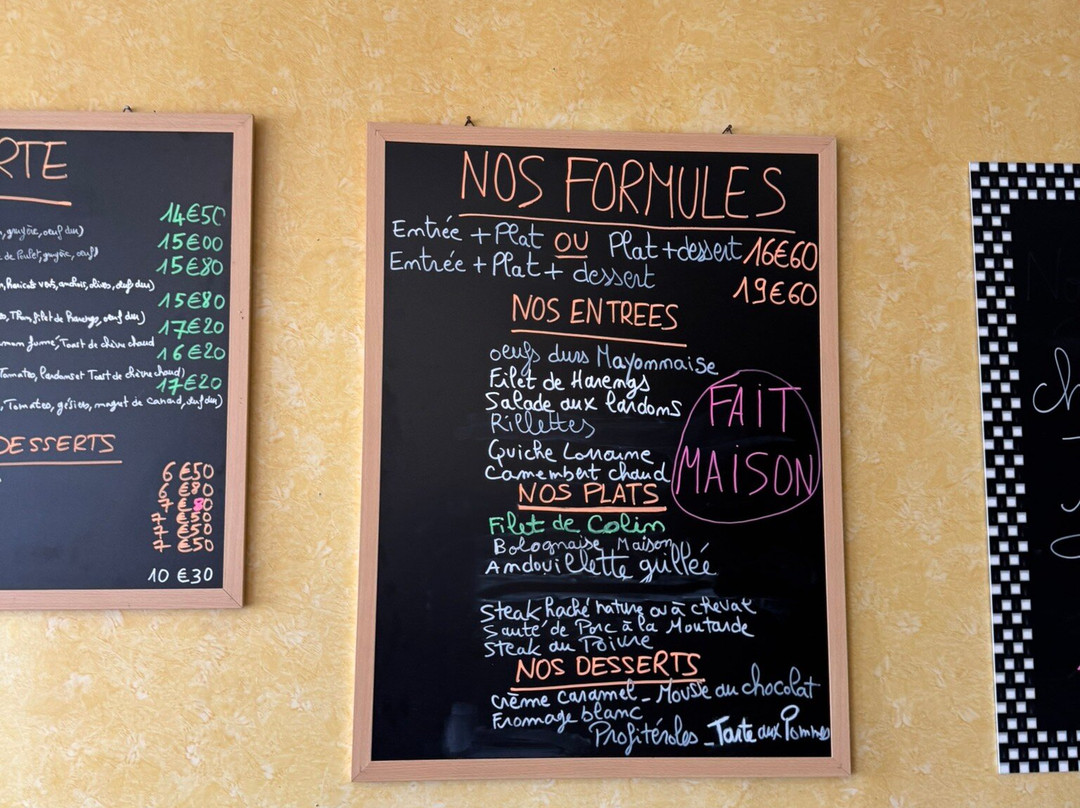 RTE
14€50
, gruyère, oeuf dur)
15€00
de Poulet, gruyère, oeuf)
15€80
, Haricots verts, anchois, olives, oeufs durs)
15€80
, Thon, filet de Harengs, oeuf dur)
17€20
fumé, Toast de chèvre chaud
16€20
Tomates, Lardons et Toast de chèvre chaud)
17€20
, Tomates, gésiers, magret de Canard, oeuf dur)
DESSERTS
6€50
6€80
7€80
7€50
7€50
7€50
10€30
NOS FORMULES
Entrée + Plat OU Plat + dessert 16€60
Entrée + Plat + dessert
19€60
NOS ENTREES
oeufs durs Mayonnaise
Filet de Harengs
Salade aux lardons
Rillettes
Quiche Lorraine
Camembert chaud
FAIT
MAISON
NOS PLATS
Filet de Colin
Bolognaise Maison
Andouillette grillée
Steak Haché nature ou à cheval
Sauté de Porc à la Moutarde
Steak au Poivre
NOS DESSERTS
crème caramel - Mousse au chocolat
Fromage blanc
Profitéroles - Tarte aux Pommes
ch